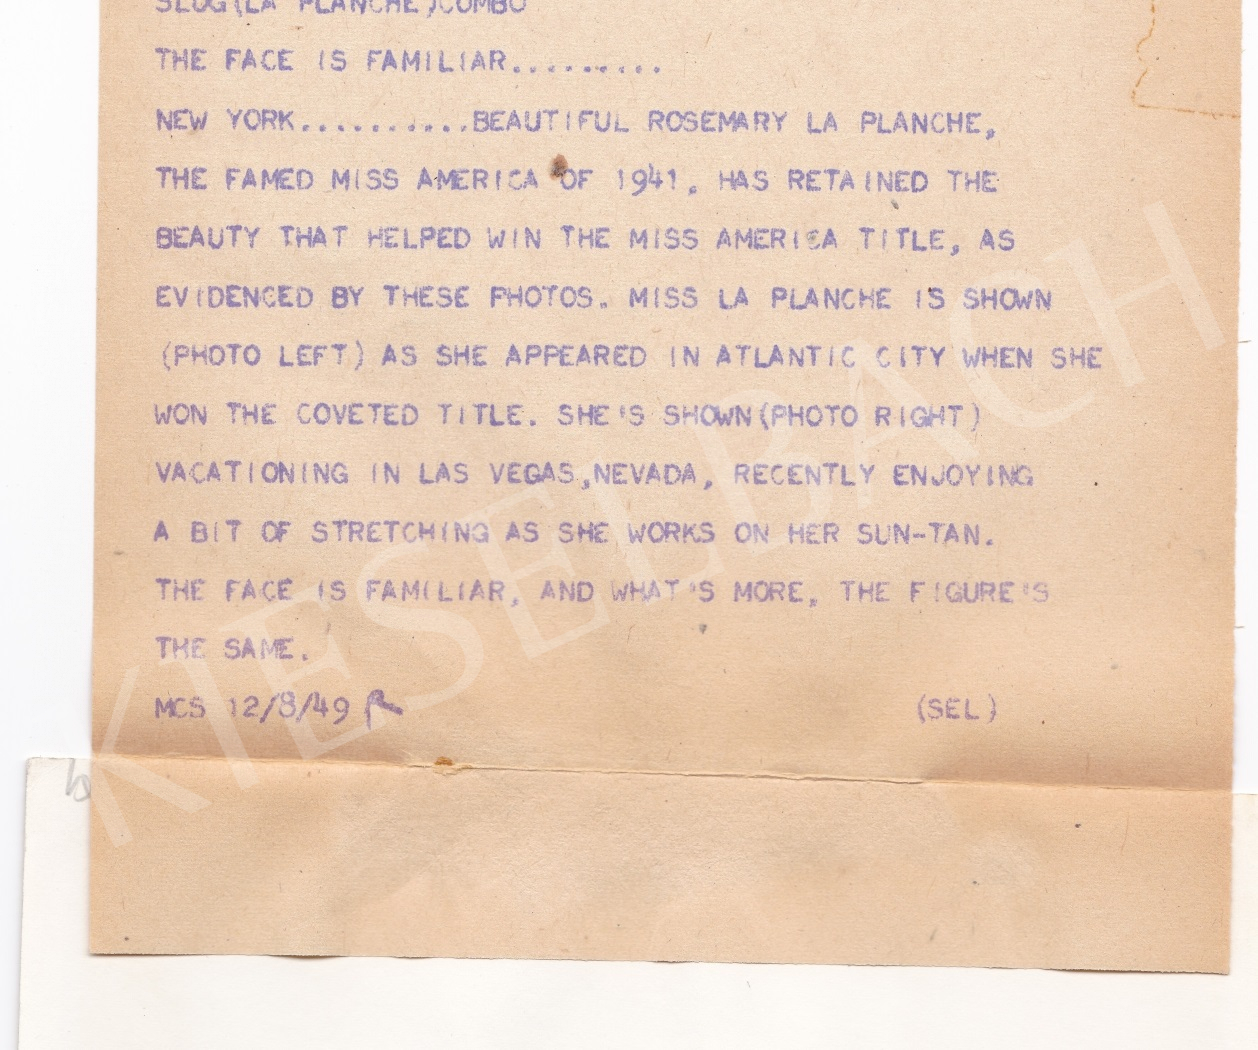 SLUG(LA PLANCHE)COMBO
THE FACE IS FAMILIAR..........
NEW YORK..........BEAUTIFUL ROSEMARY LA PLANCHE,
THE FAMED MISS AMERICA OF 1941, HAS RETAINED THE
BEAUTY THAT HELPED WIN THE MISS AMERICA TITLE, AS
EVIDENCED BY THESE PHOTOS. MISS LA PLANCHE IS SHOWN
(PHOTO LEFT) AS SHE APPEARED IN ATLANTIC CITY WHEN SHE
WON THE COVETED TITLE. SHE'S SHOWN(PHOTO RIGHT)
VACATIONING IN LAS VEGAS,NEVADA, RECENTLY ENJOYING
A BIT OF STRETCHING AS SHE WORKS ON HER SUN-TAN.
THE FACE IS FAMILIAR, AND WHAT'S MORE, THE FIGURE'S
THE SAME.
MCS 12/8/49 (SEL)
KIESELBACH